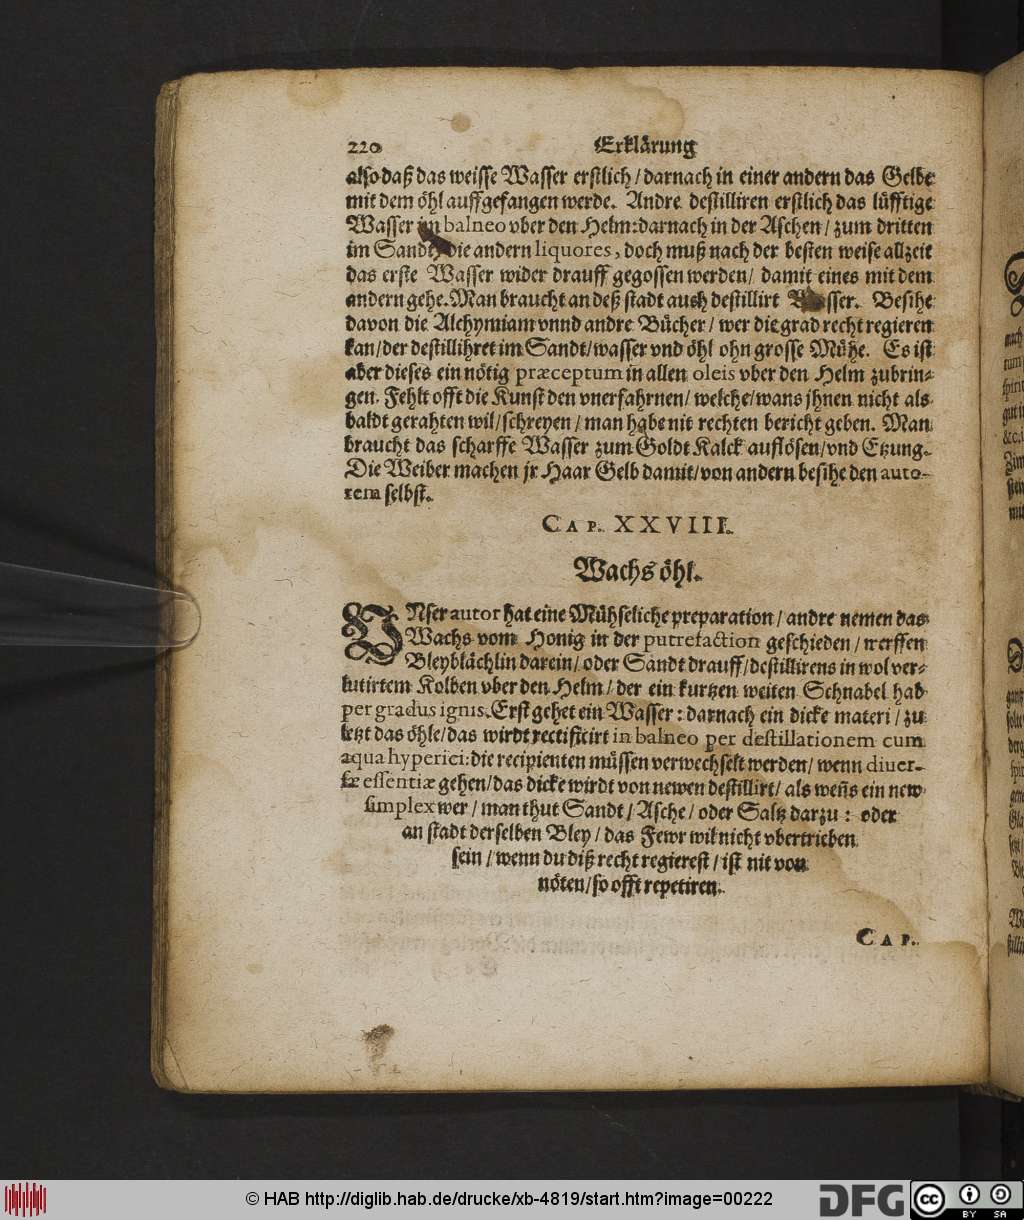 220 Erklärung
also daß das weisse Wasser erstlich / darnach in einer andern das Gelbe
mit dem öhl auffgefangen werde. Andre destilliren erstlich das lüfftige
Wasser im balneo vber den Helm: darnach in der Aschen / zum dritten
im Sandt, die andern liquores, doch muß nach der besten weise allzeit
das erste Wasser wider drauff gegossen werden / damit eines mit dem
andern gehe. Man braucht an deß stadt auch destillirt Wasser. Besihe
davon die Alchymiam vnnd andre Bücher / wer die grad recht regieren
kan / der destillihret im Sandt / wasser vnd öhl ohn grosse Mühe. Es ist
aber dieses ein nötig præceptum in allen oleis vber den Helm zubrin-
gen. Fehlt offt die Kunst den vnerfahrnen / welche / wans jhnen nicht als
baldt gerahten wil / schreyen / man habe nit rechten bericht geben. Man
braucht das scharffe Wasser zum Goldt Kalck auflösen / vnd Etzung.
Die Weiber machen jr Haar Gelb damit / von andern besihe den auto-
rem selbst.
CAP. XXVIII.
Wachs öhl.
VNser autor hat eine Mühseliche preparation / andre nemen das
Wachs vom Honig in der putrefaction geschieden / werffen
Bleyblächlin darein / oder Sandt drauff / destillirens in wol ver-
lutirtem Kolben vber den Helm / der ein kurtzen weiten Schnabel hab
per gradus ignis. Erst gehet ein Wasser: darnach ein dicke materi / zu
letzt das öhle / das wirdt rectificirt in balneo per destillationem cum
aqua hyperici: die recipienten müssen verwechselt werden / wenn diver-
sæ essentiæ gehen / das dicke wirdt von newen destillirt / als weñs ein new
simplex wer / man thut Sandt / Asche / oder Saltz darzu: oder
an stadt derselben Bley / das Fewr wil nicht vbertrieben
sein / wenn du diß recht regierest / ist nit von
nöten / so offt repetiren.
CAP.
© HAB http://diglib.hab.de/drucke/xb-4819/start.htm?image=00222
DFG
cc BY SA